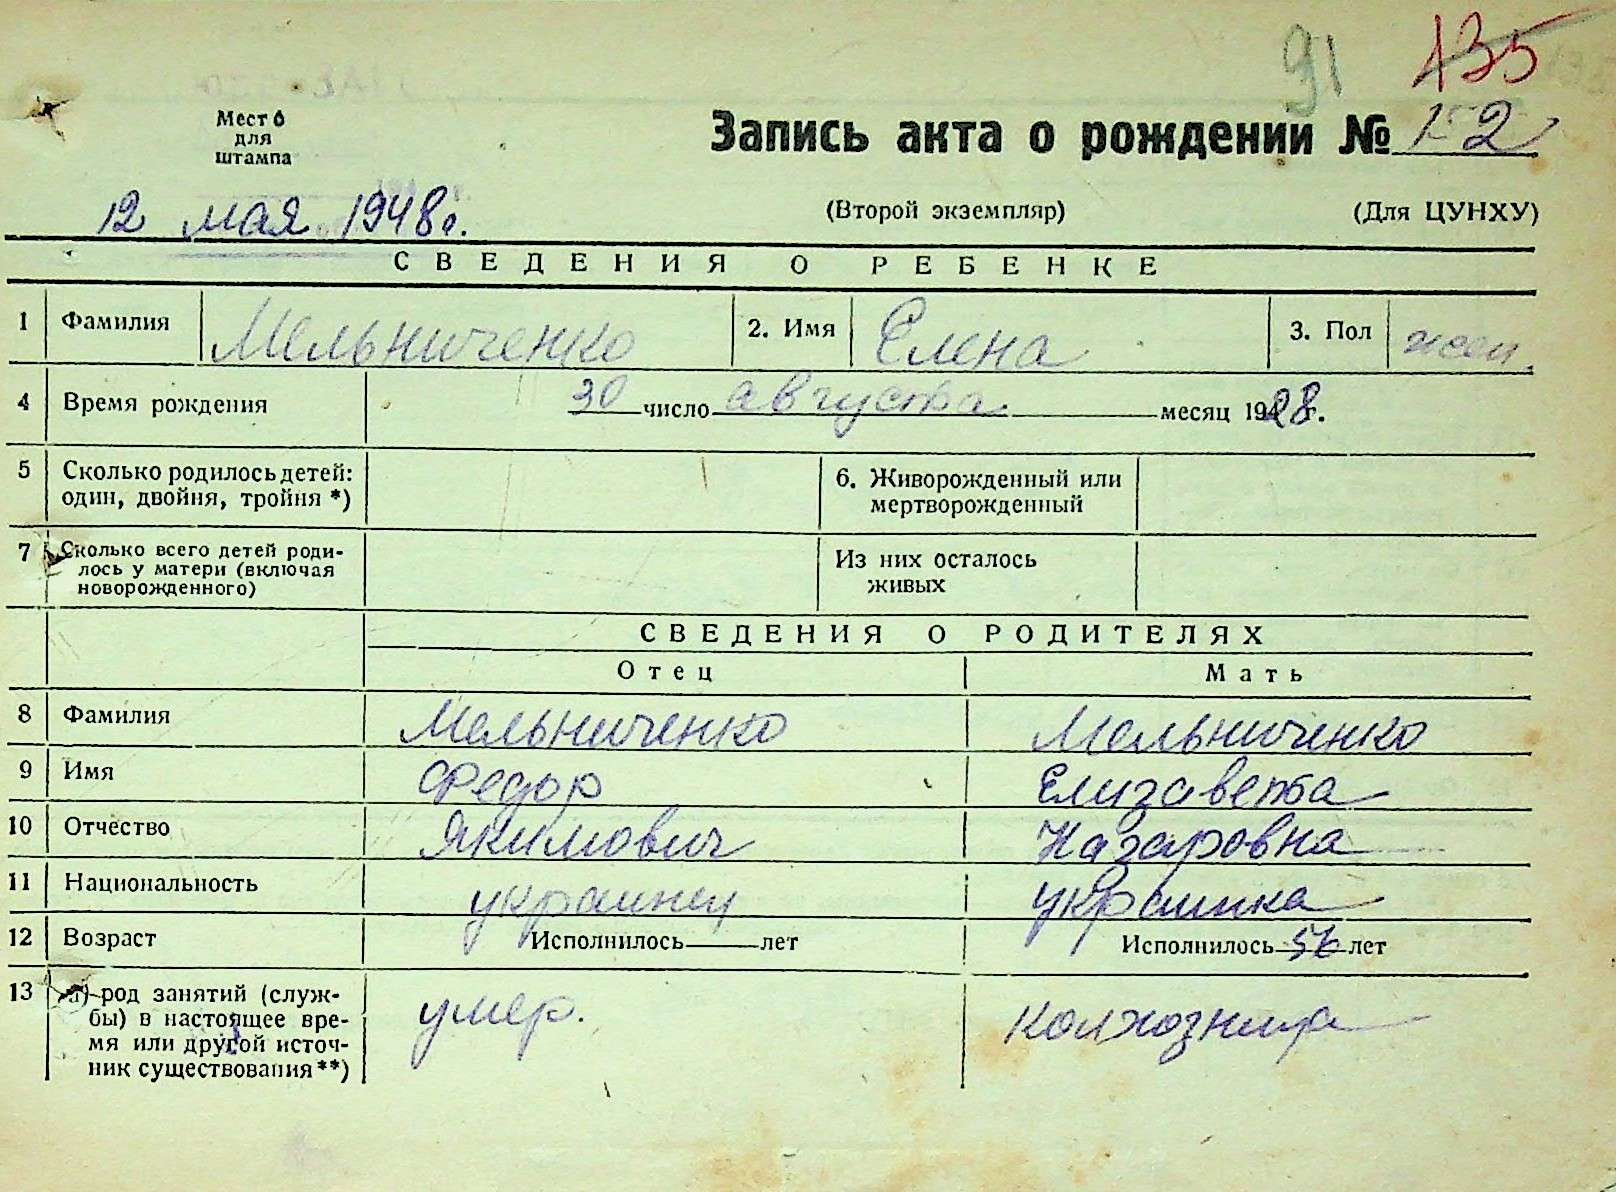 91 135
Место
для
штампа
Запись акта о рождении № 152
12 мая 1948г.
(Второй экземпляр) (Для ЦУНХУ)
СВЕДЕНИЯ О РЕБЕНКЕ
1 Фамилия Мельниченко 2. Имя Елена 3. Пол жен.
4 Время рождения 30 число августа месяц 1928 г.
5 Сколько родилось детей:
один, двойня, тройня *)
6. Живорожденный или
мертворожденный
7 Сколько всего детей роди-
лось у матери (включая
новорожденного)
Из них осталось
живых
СВЕДЕНИЯ О РОДИТЕЛЯХ
Отец Мать
8 Фамилия Мельниченко Мельниченко
9 Имя Федор Елизавета
10 Отчество Якимович Назаровна
11 Национальность украинец украинка
12 Возраст Исполнилось лет Исполнилось 56 лет
13 а) род занятий (служ-
бы) в настоящее вре-
мя или другой источ-
ник существования **)
умер. колхозница